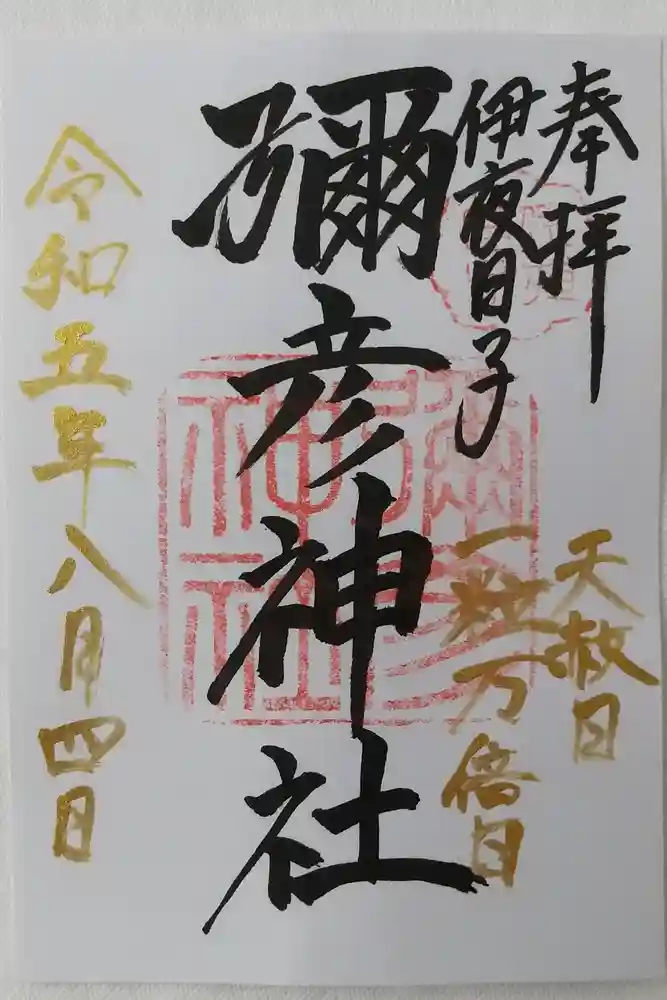 奉拝
伊夜日子
天赦日
一粒万倍日
彌彦神社
令和五年八月四日